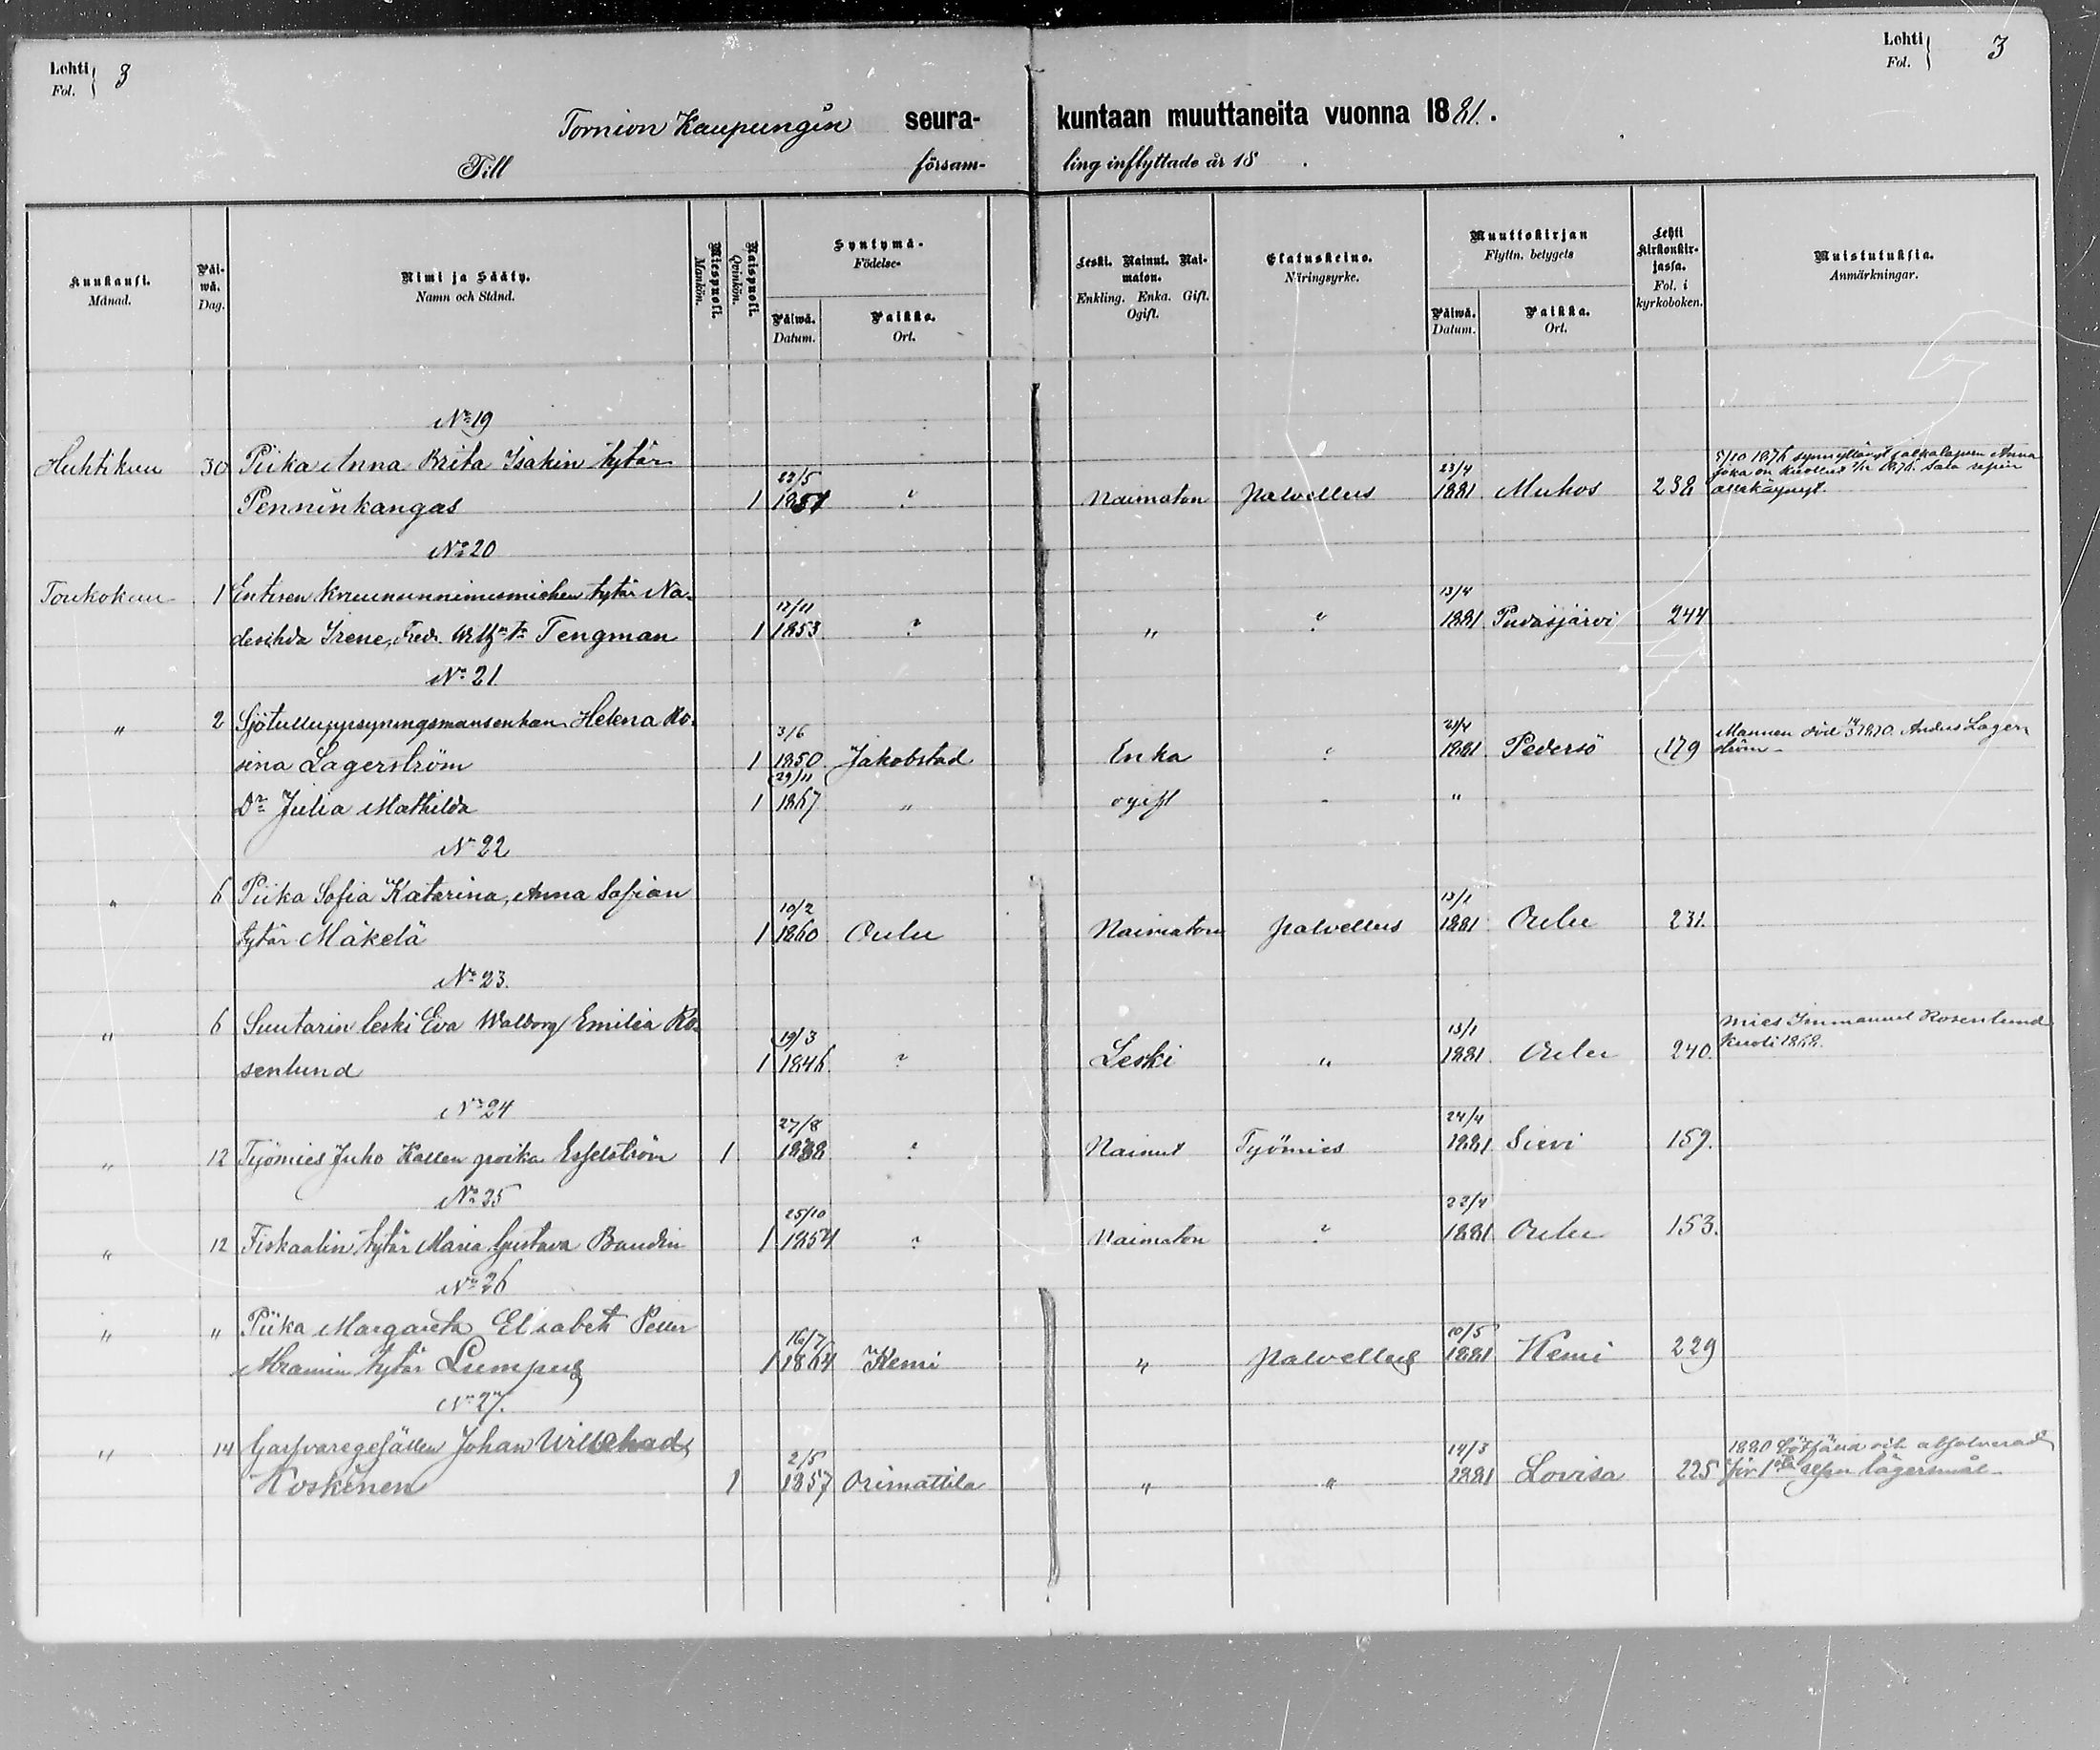 Lehti Fol. 3
Lehti Fol. 3
Tornion Kaupungin seura- kuntaan muuttaneita vuonna 1881.
Till försam- ling inflyttade år 18 .
Kuukausi. Månad.
Päi-wä. Dag.
Nimi ja Sääty. Namn och Stånd.
Miespuoli. Mankön.
Naispuoli. Qvinkön.
Syntymä- Födelse-
Päiwä. Datum.
Paikka. Ort.
Leski. Nainut. Nai-maton. Enkling. Enka. Gift. Ogift.
Elatuskeino. Näringsyrke.
Muuttokirjan Flyttn. betygets
Päiwä. Datum.
Paikka. Ort.
Lehti Kirkonkir-jassa. Fol. i kyrkoboken.
Muistutuksia. Anmärkningar.
No 19
Huhtikuu 30 Piika Anna Brita Isakin tytär 22/5 23/4 5/10 1876 synnyttänyt jalkalapsen Anna
joka on kuollut 1876. Sala ripin
Penninkangas 1 1851 ? Naimaton palvellus 1881 Muhos 238 alla käynyt.
No 20
Toukokuu 1 Entisen kruununnimismiehen tytär Na- 12/11 13/4
deschda Irene, Fredr. Tengman 1 1853 ? " ? 1881 Pudasjärvi 244
No 21
" 2 Sjötulluppsyningsmansenkan Helena Ro- 3/6 21/4 Mannen död 1870. Anders Lager-
sina Lagerström 1 1850 Jakobstad Enka 1881 Pedersö 179 ström
Dr Julia Mathilda 1 29/11 1867 " ogift - "
No 22
" 6 Piika Sofia Katarina, Anna Sofian 10/2 13/1
tytär Mäkelä 1 1860 Oulu Naimaton palvellus 1881 Oulu 231.
No 23.
" 6 Suutarin leski Eva Walborg Emilia Ro- 19/3 13/1 Mies Immanuel Rosenlund
senlund 1 1846 ? Leski " 1881 Oulu 240. kuoli 1868.
No 24
27/8 24/4
" 12 Työmies Juho Kallen poika Esselström 1 1838 ? Nainut Työmies 1881 Sievi 159.
No 25
25/10 22/4
" 12 Fiskaalin tytär Maria Gustava Baudin 1 1854 ? Naimaton ? 1881 Oulu 153.
No 26
" " Piika Margareta Elisabeth Petter 16/7 10/5
Abramin tytär Lumpus 1 1864 Kemi " palvellus 1881 Kemi 229
No 27.
" 14 Garfvaregesällen Johan Willehad 2/5 14/3 1880 bötfäld och absolverad
Koskinen 1 1857 Orimattila " " 1881 Lovisa 225 för 1sta resan lägersmål